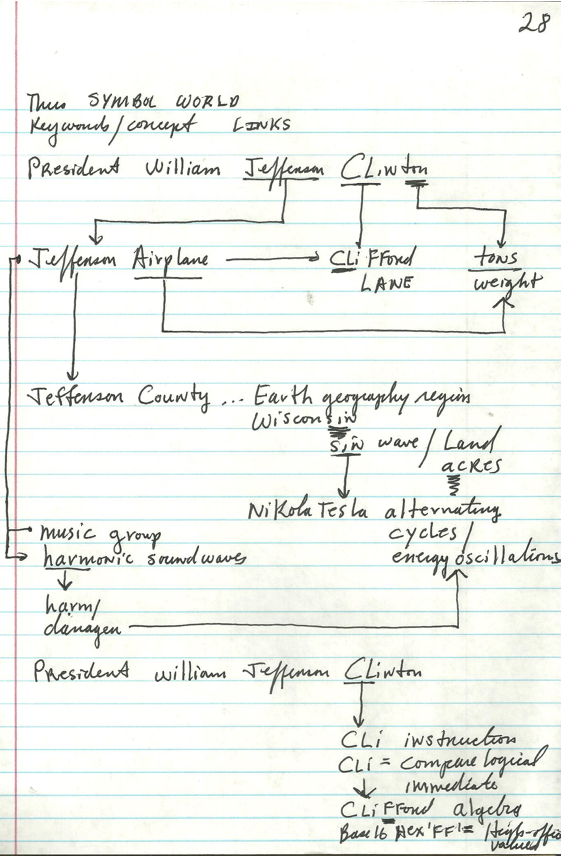 28
Thus SYMBOL WORLD
Keywords/concept LINKS
President William Jeffenson CLinton
Jeffenson Airplane
CLiFFord
LANE
tons
weight
Jeffenson County ... Earth geography region
Wisconsin
sin wave / Land
acRes
Nikola Tesla alternating
cycles /
energy oscillations
music group
harmonic soundwaves
harm/
damagen
President William Jeffenson CLinton
CLi instruction
CLi = compare logical
immediate
CLiFFord algebra
Base 16 Hex 'FF' =
values